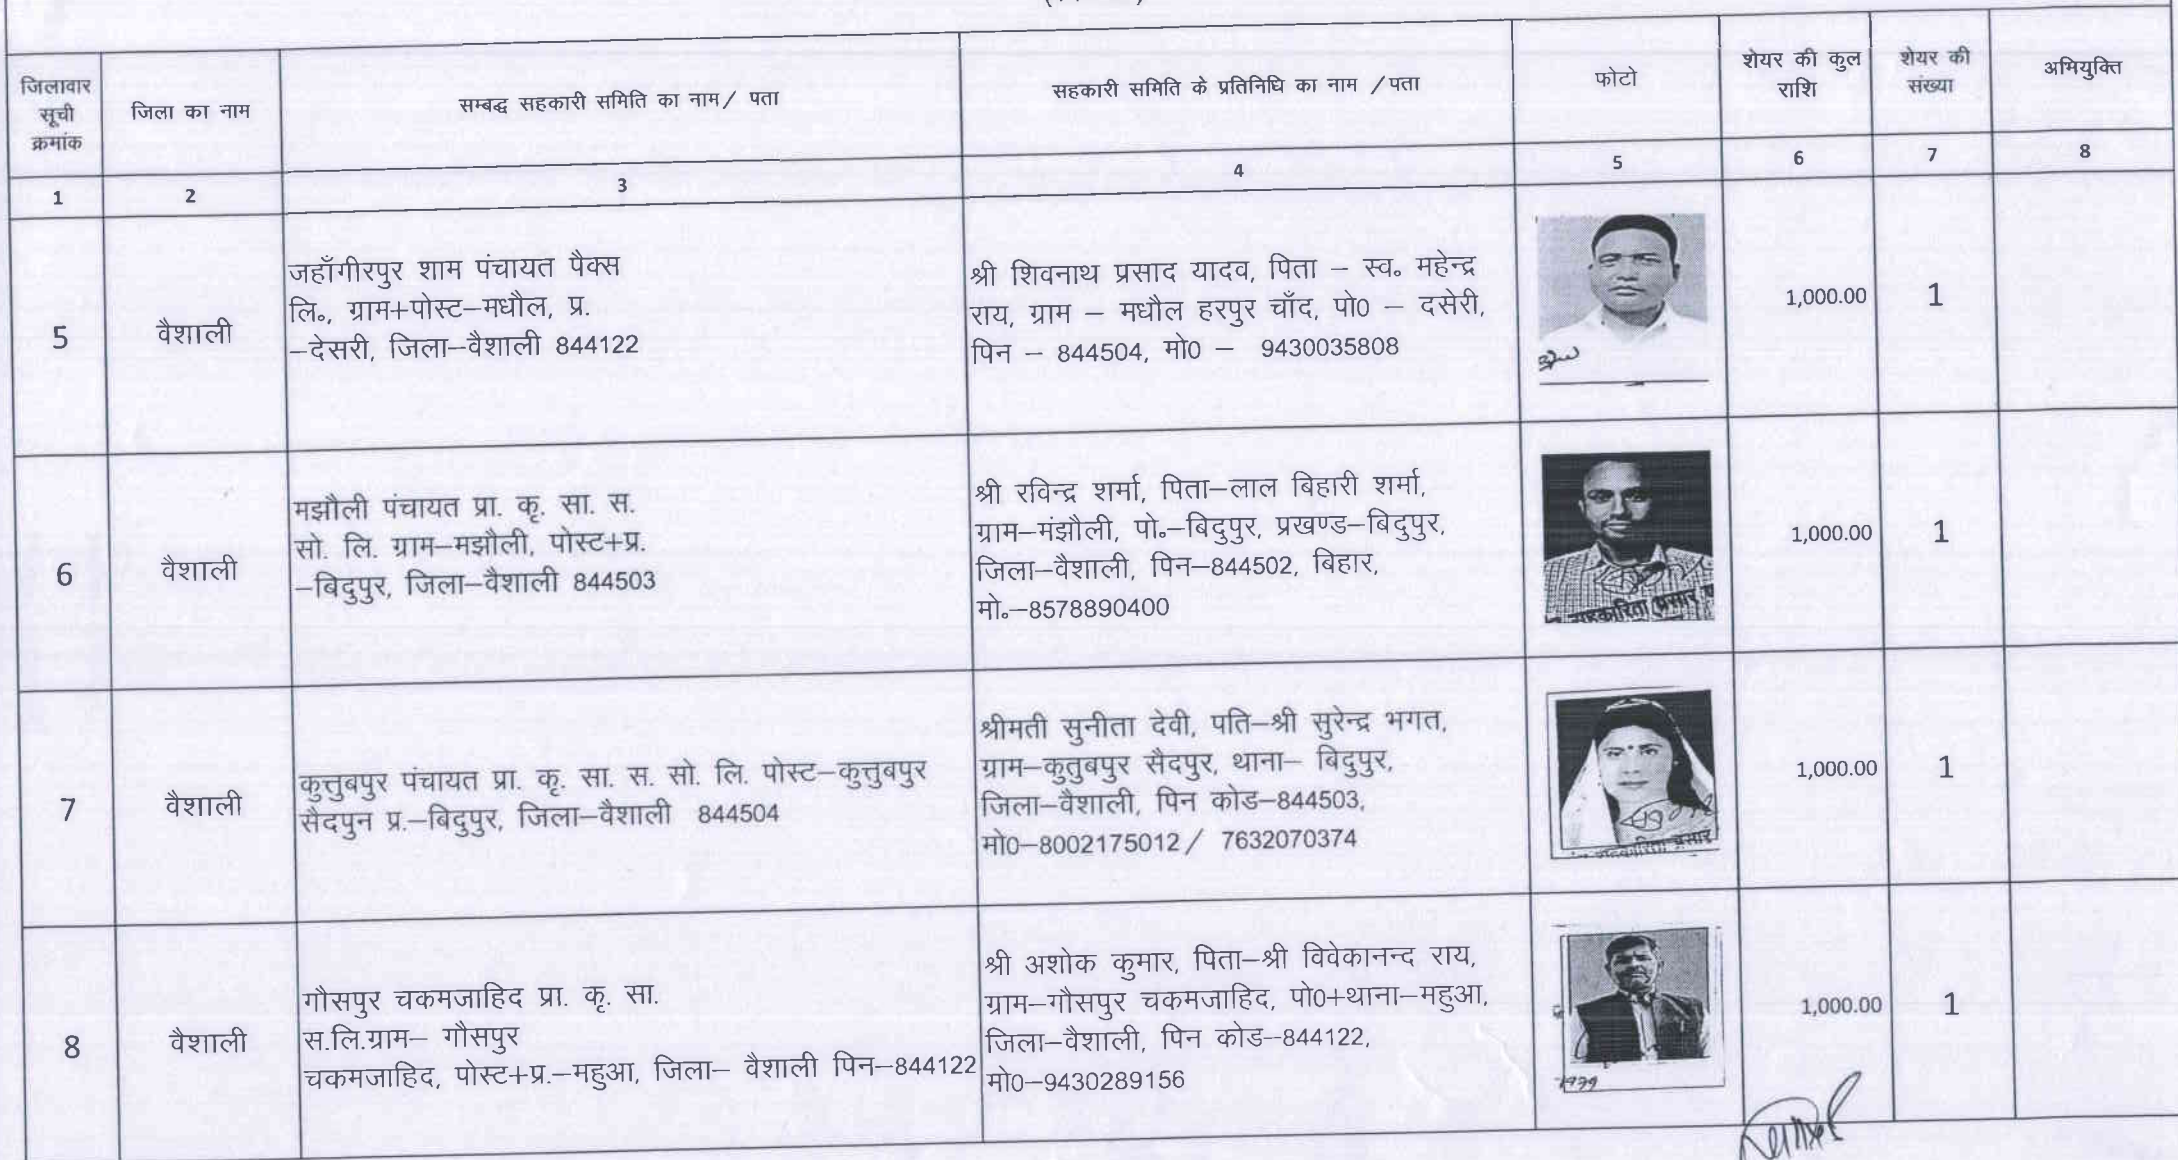 जिलावार
सूची
क्रमांक
जिला का नाम
सम्बद्ध सहकारी समिति का नाम/ पता
सहकारी समिति के प्रतिनिधि का नाम /पता
फोटो
शेयर की कुल
राशि
शेयर की
संख्या
अभियुक्ति
1 2 3 4 5 6 7 8
5
वैशाली
जहाँगीरपुर शाम पंचायत पैक्स
लि०, ग्राम+पोस्ट–मधौल, प्र.
–देसरी, जिला–वैशाली 844122
श्री शिवनाथ प्रसाद यादव, पिता – स्व० महेन्द्र
राय, ग्राम – मधौल हरपुर चाँद, पो0 – दसेरी,
पिन – 844504, मो0 – 9430035808
1,000.00
1
6
वैशाली
मझौली पंचायत प्रा. कृ. सा. स.
सो. लि. ग्राम–मझौली, पोस्ट+प्र.
–बिदुपुर, जिला–वैशाली 844503
श्री रविन्द्र शर्मा, पिता–लाल बिहारी शर्मा,
ग्राम–मंझौली, पो०–बिदुपुर, प्रखण्ड–बिदुपुर,
जिला–वैशाली, पिन–844502, बिहार,
मो०–8578890400
सहकारिता प्रसार
1,000.00
1
7
वैशाली
कुत्तुबपुर पंचायत प्रा. कृ. सा. स. सो. लि. पोस्ट–कुत्तुबपुर
सैदपुन प्र.–बिदुपुर, जिला–वैशाली 844504
श्रीमती सुनीता देवी, पति–श्री सुरेन्द्र भगत,
ग्राम–कुतुबपुर सैदपुर, थाना– बिदुपुर,
जिला–वैशाली, पिन कोड–844503,
मो0–8002175012/ 7632070374
सहकारिता प्रसार
1,000.00
1
8
वैशाली
गौसपुर चकमजाहिद प्रा. कृ. सा.
स.लि.ग्राम– गौसपुर
चकमजाहिद, पोस्ट+प्र.–महुआ, जिला– वैशाली पिन–844122
श्री अशोक कुमार, पिता–श्री विवेकानन्द राय,
ग्राम–गौसपुर चकमजाहिद, पो0+थाना–महुआ,
जिला–वैशाली, पिन कोड–844122,
मो0–9430289156
1,000.00
1